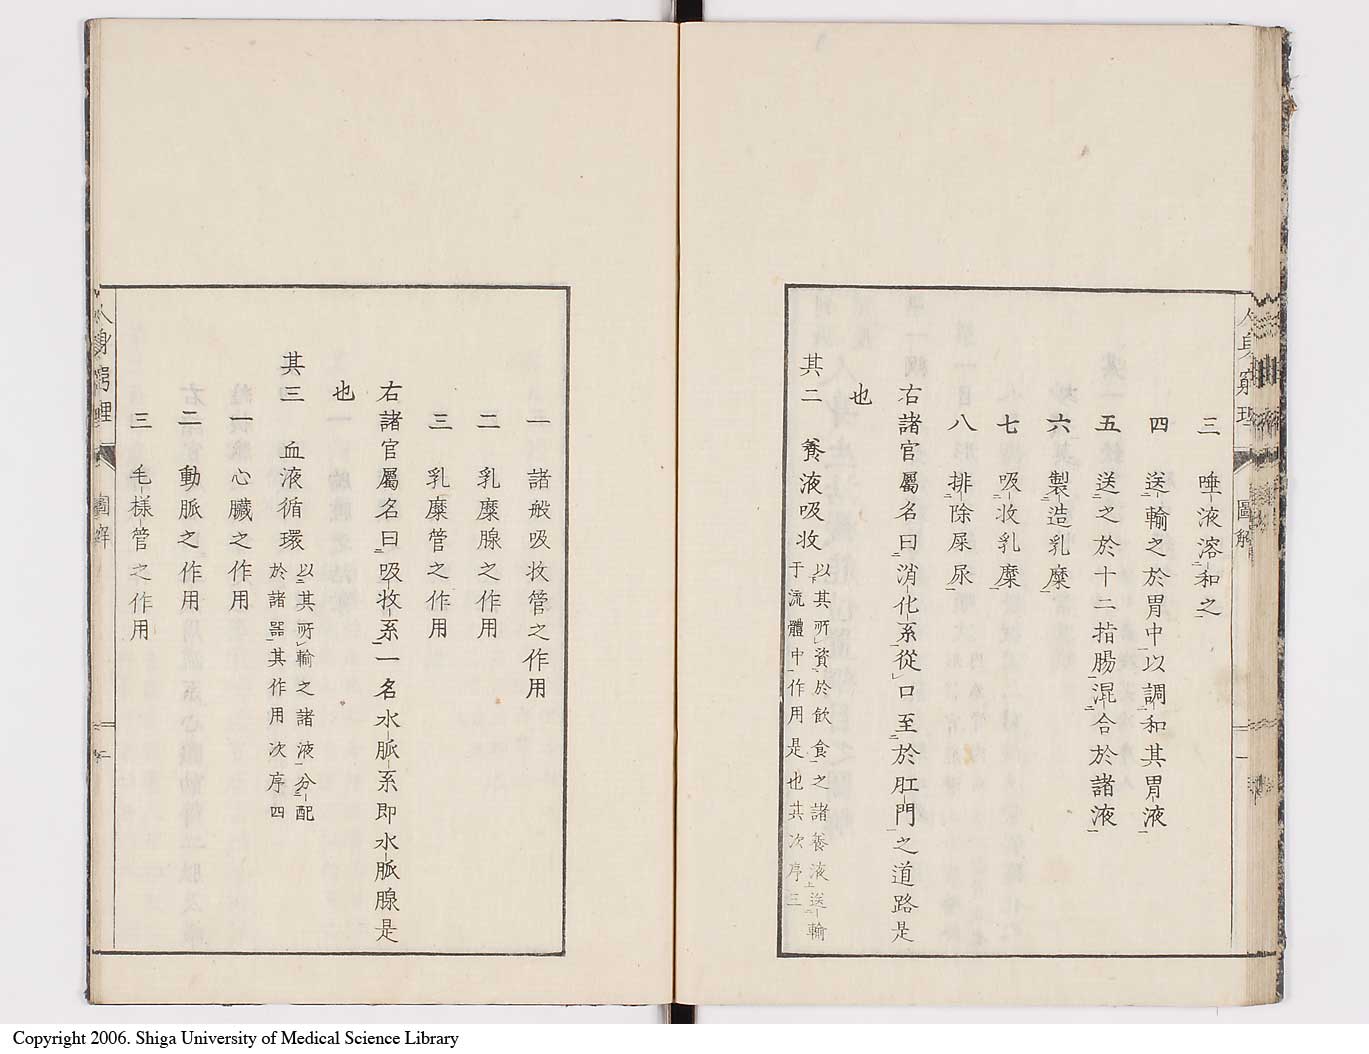 三 唾液溶和之
四 送輸之於胃中以調和其胃液
五 送之於十二指腸混合於諸液
六 製造乳糜
七 吸收乳糜
八 排除屎尿
右諸官屬名曰消化系從口至於肛門之道路是
也
其二 養液吸收 以其所資於飲食之諸養液送輸
于流體中作用是也其次序三
人身窮理 圖解 一
一 諸般吸收管之作用
二 乳糜腺之作用
三 乳糜管之作用
右諸官屬名曰吸收系一名水脈系即水脈腺是
也
其三 血液循環 以其所輸之諸液分配
於諸器其作用次序四
一 心臟之作用
二 動脈之作用
三 毛樣管之作用
人身窮理 圖解
Copyright 2006. Shiga University of Medical Science Library